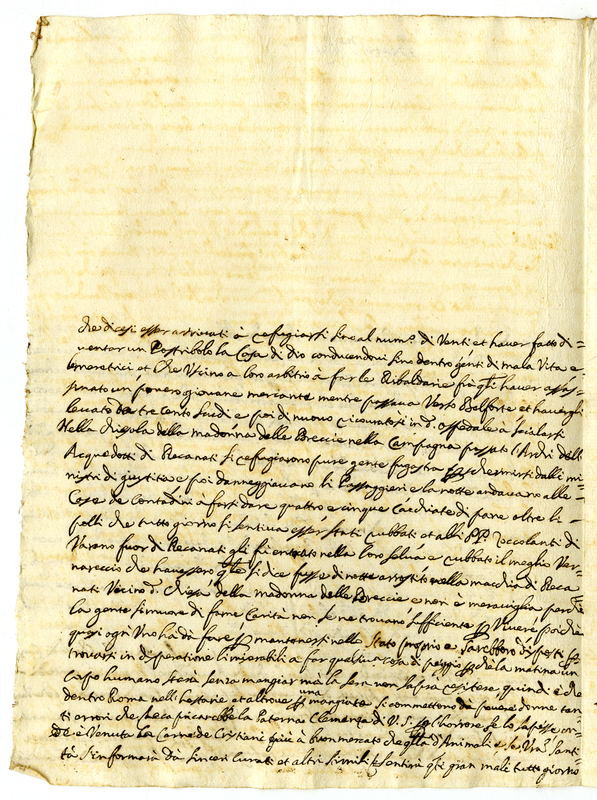 che dicesi esser arrivati à refugiarsi sino al num.º di Venti et haver fatto di=
ventar un Postribolo la Casa di Dio conducendovi sino dentro genti di mala Vita e
et che Vicino a loro arbitrio à far le Ribaldarie fra gli haver assas=
sinato un povero giovane mercante mentre passava Verso Belforte et havergli
levato da tre cento scudi e poi di nuovo ricovratosi in d.º ospedale a
Nella chiesola della madonna delle Breccie nella Campagna passati l'Archi dell
Acquedotti di Recanati si refugiarono pure gente dalli mi
nistri di giustitia e poi danneggiavano li Passaggieri e la notte andavano alle
Case de Contadini à farsi dare quattro e cinque di pane oltre li
polli che tutto giorno si sentiva esser stati rubbati et alli PP. Zoccolanti di
Varano fuor di Recanati gli fù entrato nella loro selva e rubbati il meglio Ver=
nareccio che havessero si dice fusse di notte arrestito nella macchia di Reca
nati Vicino d.ª chiesa della madonna delle Breccie e non è meraviglia perche
la gente si muore di fame Carità non se ne trovano sufficiente Vivere poiche
quasi ogni Uno hà da fare mantenersi nello stato proprio e
trovarsi in disperatione li miserabili a far qualsivoglia cosa di peggio che la matina un
Corpo humano starà senza mangiar mà la sera non saprà resistere, quindi è che
dentro Roma nell'hostarie et altrove una mangiata si commettono dà povere donne tan=
ti errori che la Paterna Clemenza di V. S. l'horrore se lo sapesse
è Venuta la Carne de Cristiani più à buon mercato che quella d'Animali e se Vra. Santi=
tà s'informarà dà sinceri Curati et altri simili sentirà gli gran mali tutto giorno